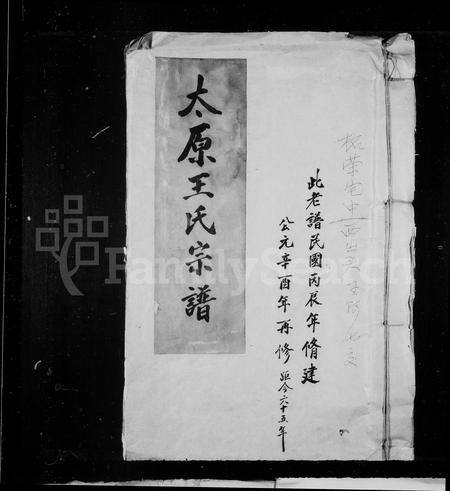 太原王氏宗譜
此老譜民國丙辰年脩建
公元辛酉年再修 距今六十五年
FamilySearch